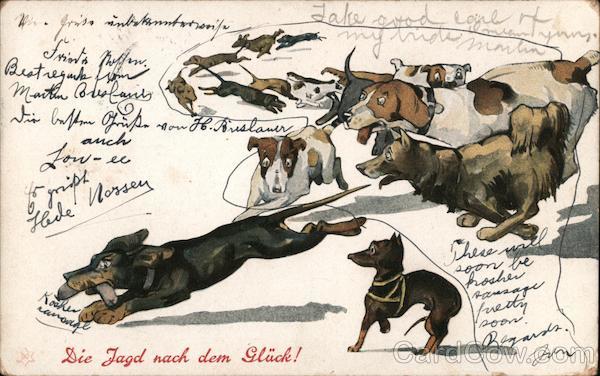 Grüße unbekannterweise
Take good care of
my bride
Martin
Frieda
Best regards from
Martin Breslauer
Die besten Grüße von H. Breslauer
auch
grüßt
Hede Nossen
These will
soon be
kosher
sausage
pretty
soon.
Regards.
Kosher
sausage
Die Jagd nach dem Glück!
CardCow.com